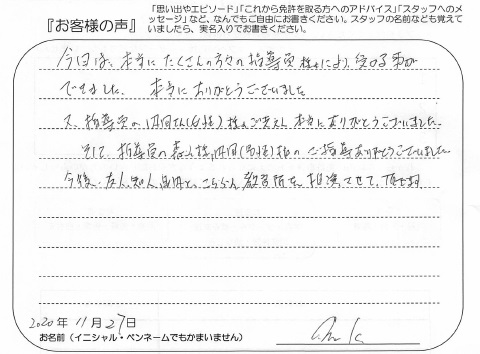 『お客様の声』
「思い出やエピソード」「これから免許を取る方へのアドバイス」「スタッフへのメッセージ」など、なんでもご自由にお書きください。スタッフの名前なども覚えていましたら、実名入りでお書きください。
今日は、本当にたくさんの方々の指導員様により、受ける事が
できました。 本当にありがとうございました
又、指導員の 様 本当にありがとうございました。
そして、指導員の森 様、 ご指導ありがとうございました
今後、友人、知人 教習所を、推薦させて、頂きます
2020年 11月27日
お名前(イニシャル・ペンネームでもかまいません)